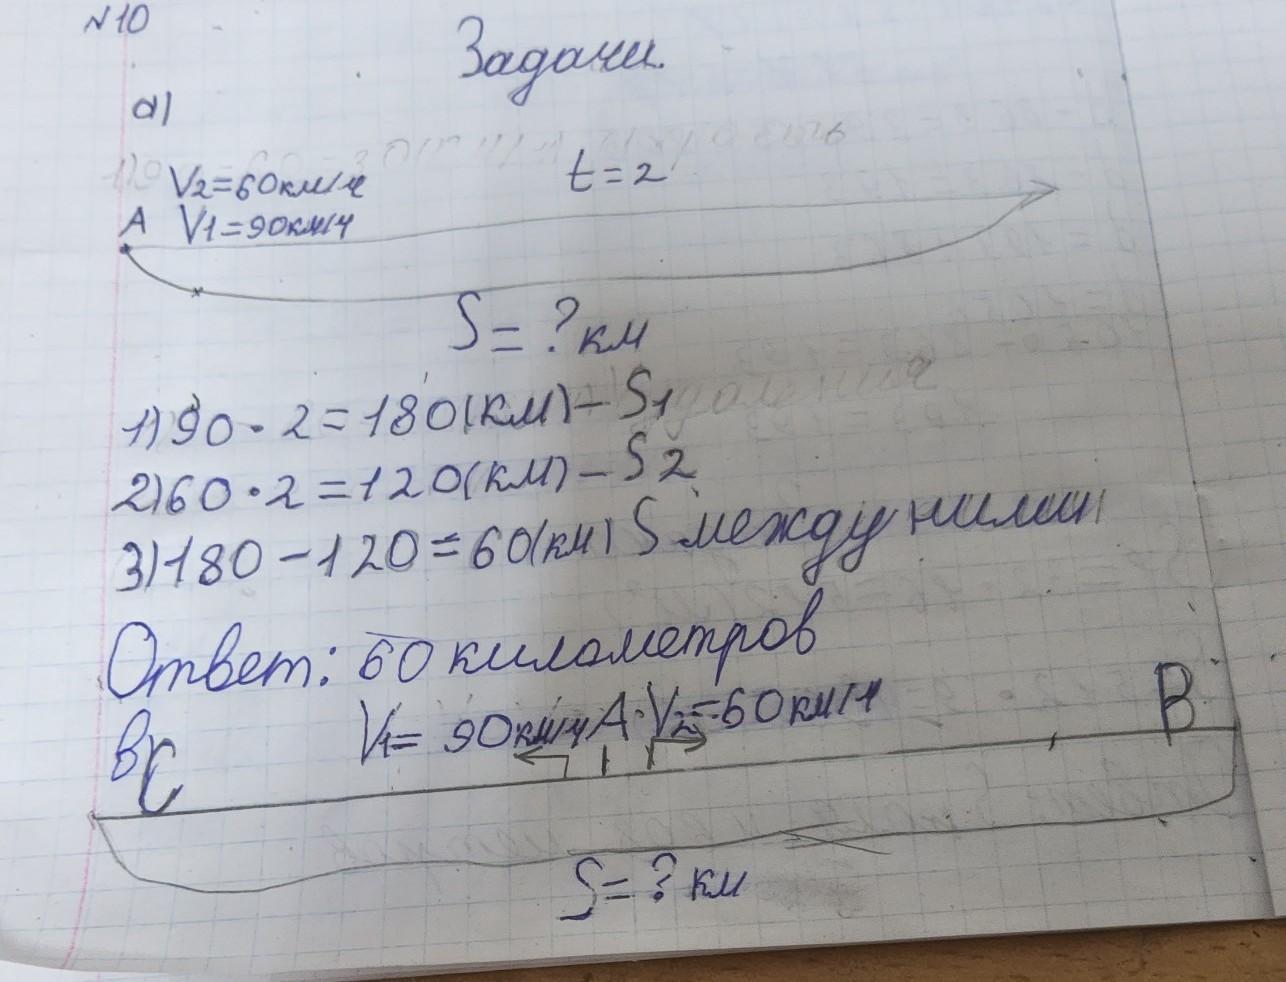 №10
Задачи.
а)
V2=60км/ч t=2
А V1=90км/ч
S=?км
1)90·2=180(км)-S1
2)60·2=120(км)-S2
3)180-120=60(км) S между ними
Ответ: 60 километров
в) V1= 90км/ч А V2=60км/ч В
С
S=? км